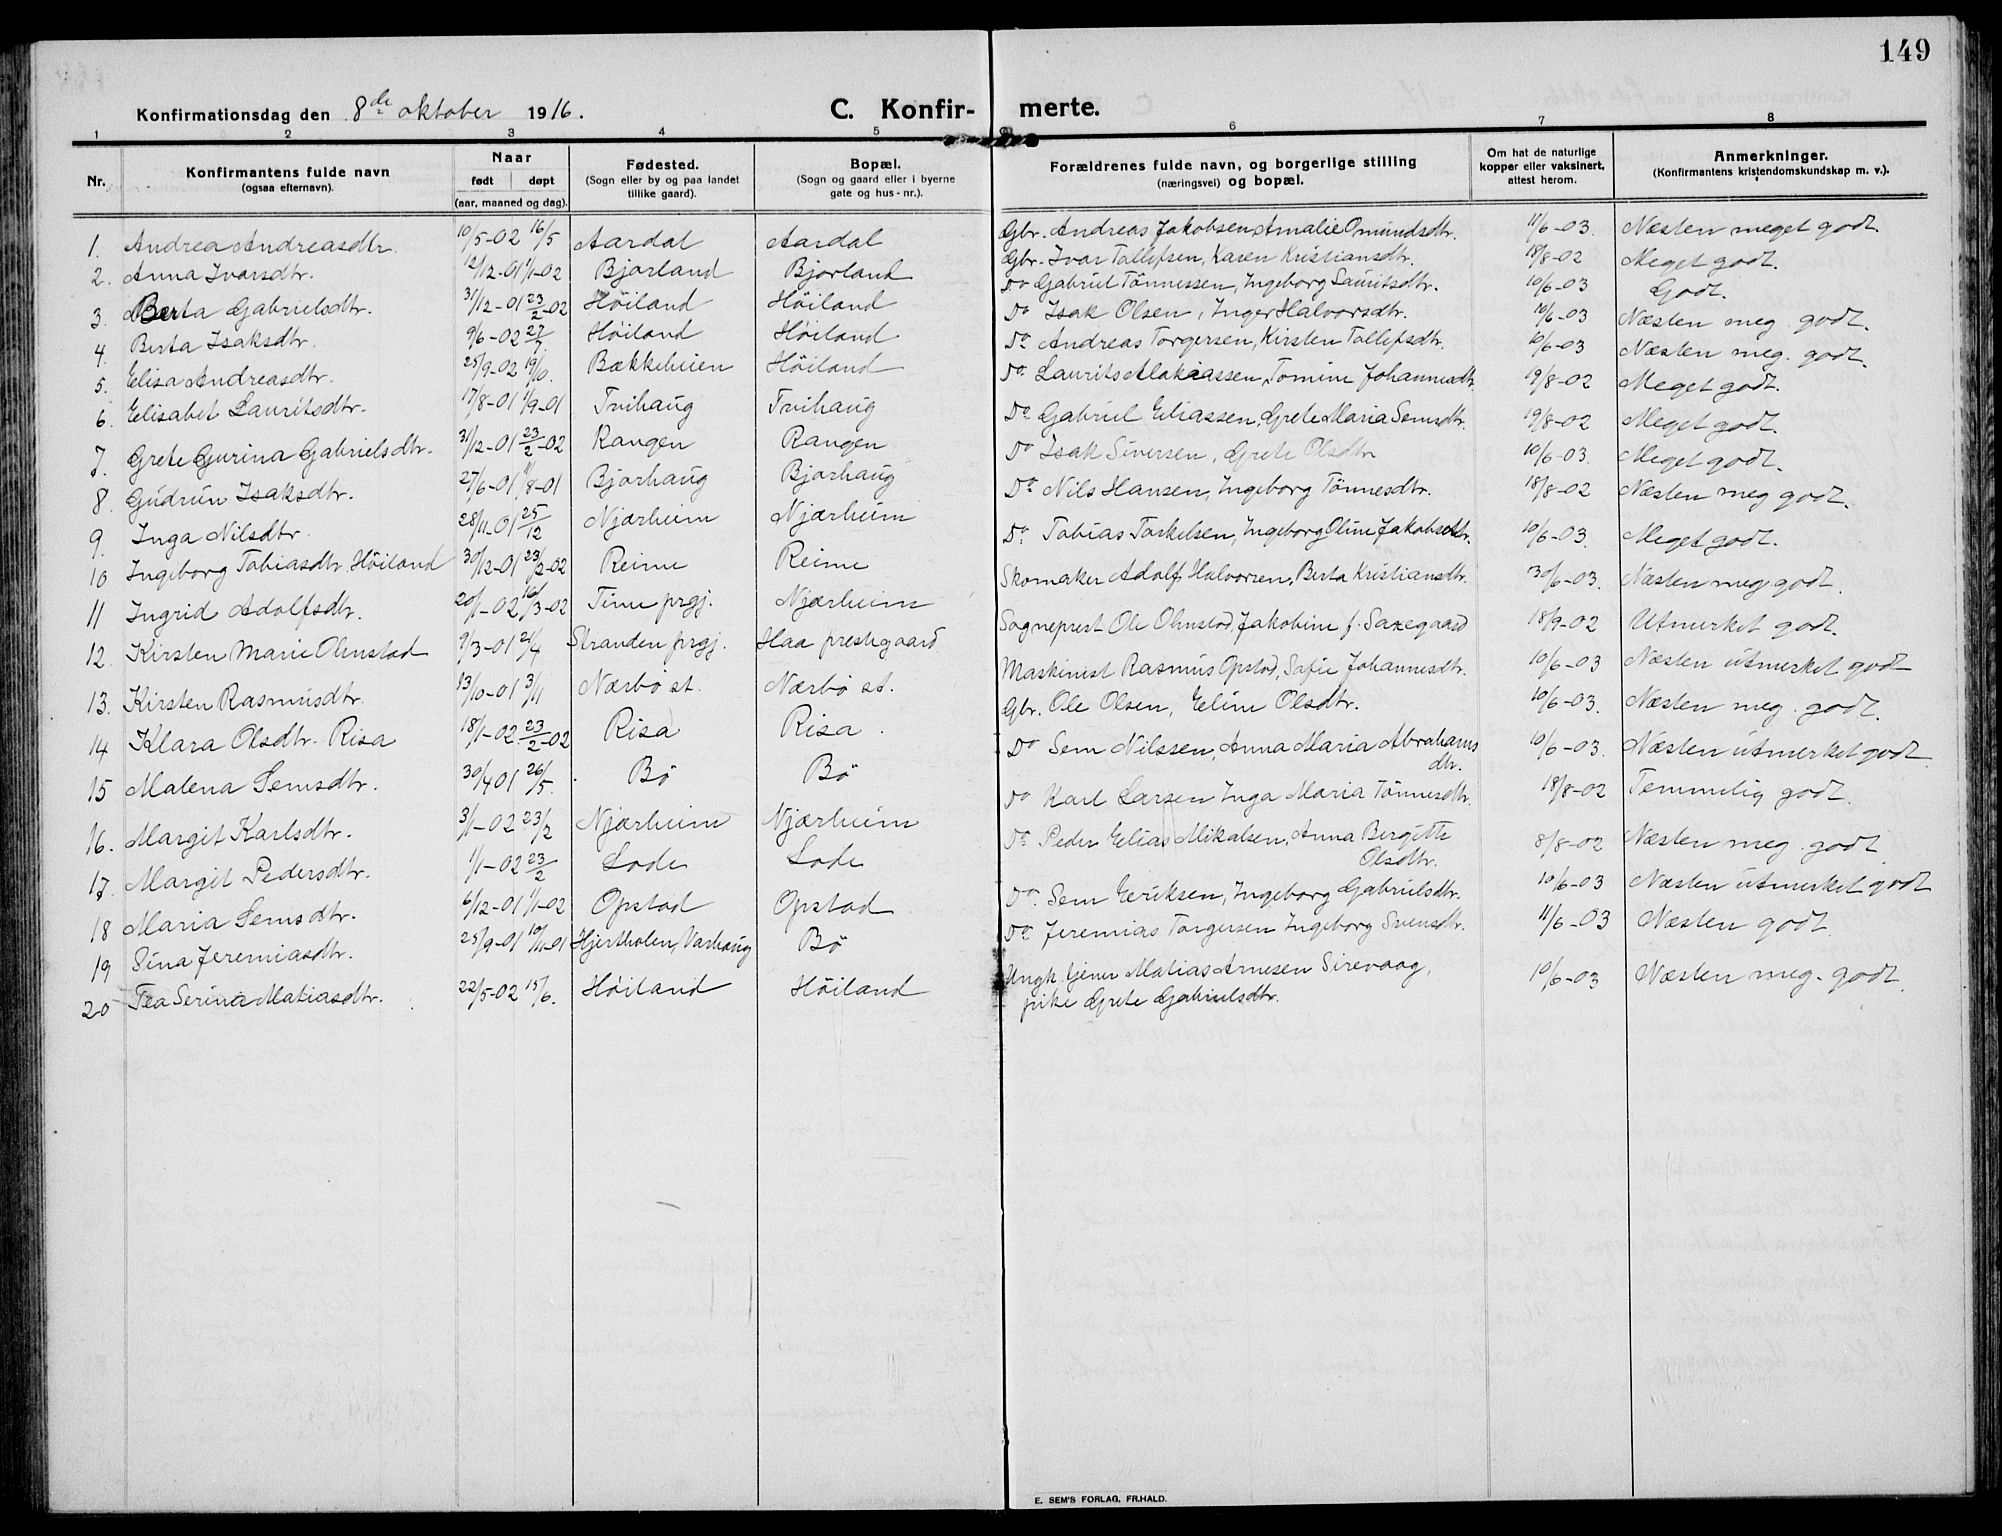 149
Konfirmationsdag den 8de oktober 1916. C. Konfir- merte.
1 2 3 4 5 6 7 8
Nr. Konfirmantens fulde navn (ogsaa efternavn). Naar født døpt (aar, maaned og dag). Fødested. (Sogn eller by og paa landet tillike gaard). Bopæl. (Sogn og gaard eller i byerne gate og hus-nr.). Forældrenes fulde navn, og borgerlige stilling (næringsvei) og bopæl. Om hat de naturlige kopper eller vaksinert, attest herom. Anmerkninger. (Konfirmantens kristendomskundskap m. v.).
1. Andrea Andreasdtr. 10/5-02 16/5 Aardal Aardal Gbr. Andreas Jakobsen, Amalie Omundsdtr. 11/6-03. Næsten meget godt.
2. Anna Ivarsdtr. 12/12-01 1/1-02 Bjorland Bjorland Gbr. Ivar Tollefsen, Karen Kristiansdtr. 18/8-02 Meget godt.
3. Berta Gabrielsdtr. 31/12-01 23/2-02 Höiland Höiland Do Gabriel Tönnessen, Ingeborg Lauritsdtr. 10/6-03 Godt.
4. Berta Isaksdtr. 9/6-02 27/7 Höiland Höiland Do Isak Olsen, Inger Halvorsdtr. 10/6-03 Næsten meg. godt.
5. Elisa Andreasdtr. 25/9-02 19/10. Bækkeheien Höiland Do Andreas Torgersen, Kirsten Tollefsdtr. 10/6-03 Næsten meg. godt.
6. Elisabet Lauritsdtr. 17/8-01 1/9-01 Tvihaug Tvihaug Do Laurits Malakiassen, Tomine Johannesdtr. 19/8-02 Meget godt.
7. Grete Gurina Gabrielsdtr. 31/12-01 23/2-02 Rangen Rangen Do Gabriel Eliassen, Grete Maria Semsdtr. 19/8-02 Meget godt.
8. Gudrun Isaksdtr. 27/6-01 11/8-01 Bjorhaug Bjorhaug Do Isak Siversen, Grete Olsdtr 10/6-03. Meget godt.
9. Inga Nilsdtr. 28/11-01 25/12 Njærheim Njærheim Do Nils Hansen, Ingeborg Tönnesdtr. 18/8-02 Næsten meg godt.
10 Ingeborg Tobiasdtr. Höiland 30/12-01 23/2-02 Reime Reime Do Tobias Torkelsen, Ingeborg Oline Jakobsdtr. 10/6-03. Meget godt.
11 Ingrid Adolfsdtr. 20/1-02 16/3-02 Time prgj. Njærheim Skomaker Adolf Halvorsen, Berta Kristiansdtr. 30/6-03. Næsten meg. godt.
12. Kirsten Marie Olmstad 9/3-01 21/4 Stranden prgj. Haa prestegaard Sogneprest Ole Olmstad, Jakobine f. Saxegaard 18/9-02 Utmerket godt.
13. Kirsten Rasmusdtr. 13/10-01 3/11 Nærbö st. Nærbö st. Maskinist Rasmus Opstad, Sofie Johannesdtr. 10/6-03 Næsten utmerket godt
14 Klara Olsdtr. Risa 18/1-02. 23/2-02 Risa Risa. Gbr. Ole Olsen, Eline Olsdtr. 10/6-03. Næsten meg. godt.
15 Malena Semsdtr. 30/4 01 26/5. Bö Bö Do Sem Nilssen, Anna Maria Abrahams
dtr. 10/6-03. Næsten utmerket godt
16. Margit Karlsdtr. 3/1-02 23/2 Njærheim Njærheim Do Karl Larsen Inga Maria Tönnesdtr. 18/8-02 Temmelig godt.
17. Margit Pedersdtr. 1/1-02 23/2 Lode Lode Do Peder Elias Mikalsen, Anna Bergitte
Olsdtr. 8/8-02 Næsten meg. godt.
18 Maria Semsdtr. 6/12-01 1/1-02 Opstad Opstad Do. Sem Eeriksen, Ingeborg Gabrielsdtr. 10/6-03 Næsten utmerket godt
19 Sina Jeremiasdtr. 25/9-01 10/11-01 Hjertholen, Varhaug Bö Do Jeremias Torgersen Ingeborg Svensdtr. 11/6-03 Næsten godt
20 Tea Serina Matiasdtr. 22/5-02 15/6. Höiland Höiland Ungk. tjener Matias Arnesen Sirevaag,
pike Grete Gabrielsdtr. 10/6-03 Næsten meg. godt
E. SEM'S FORLAG, FR.HALD.